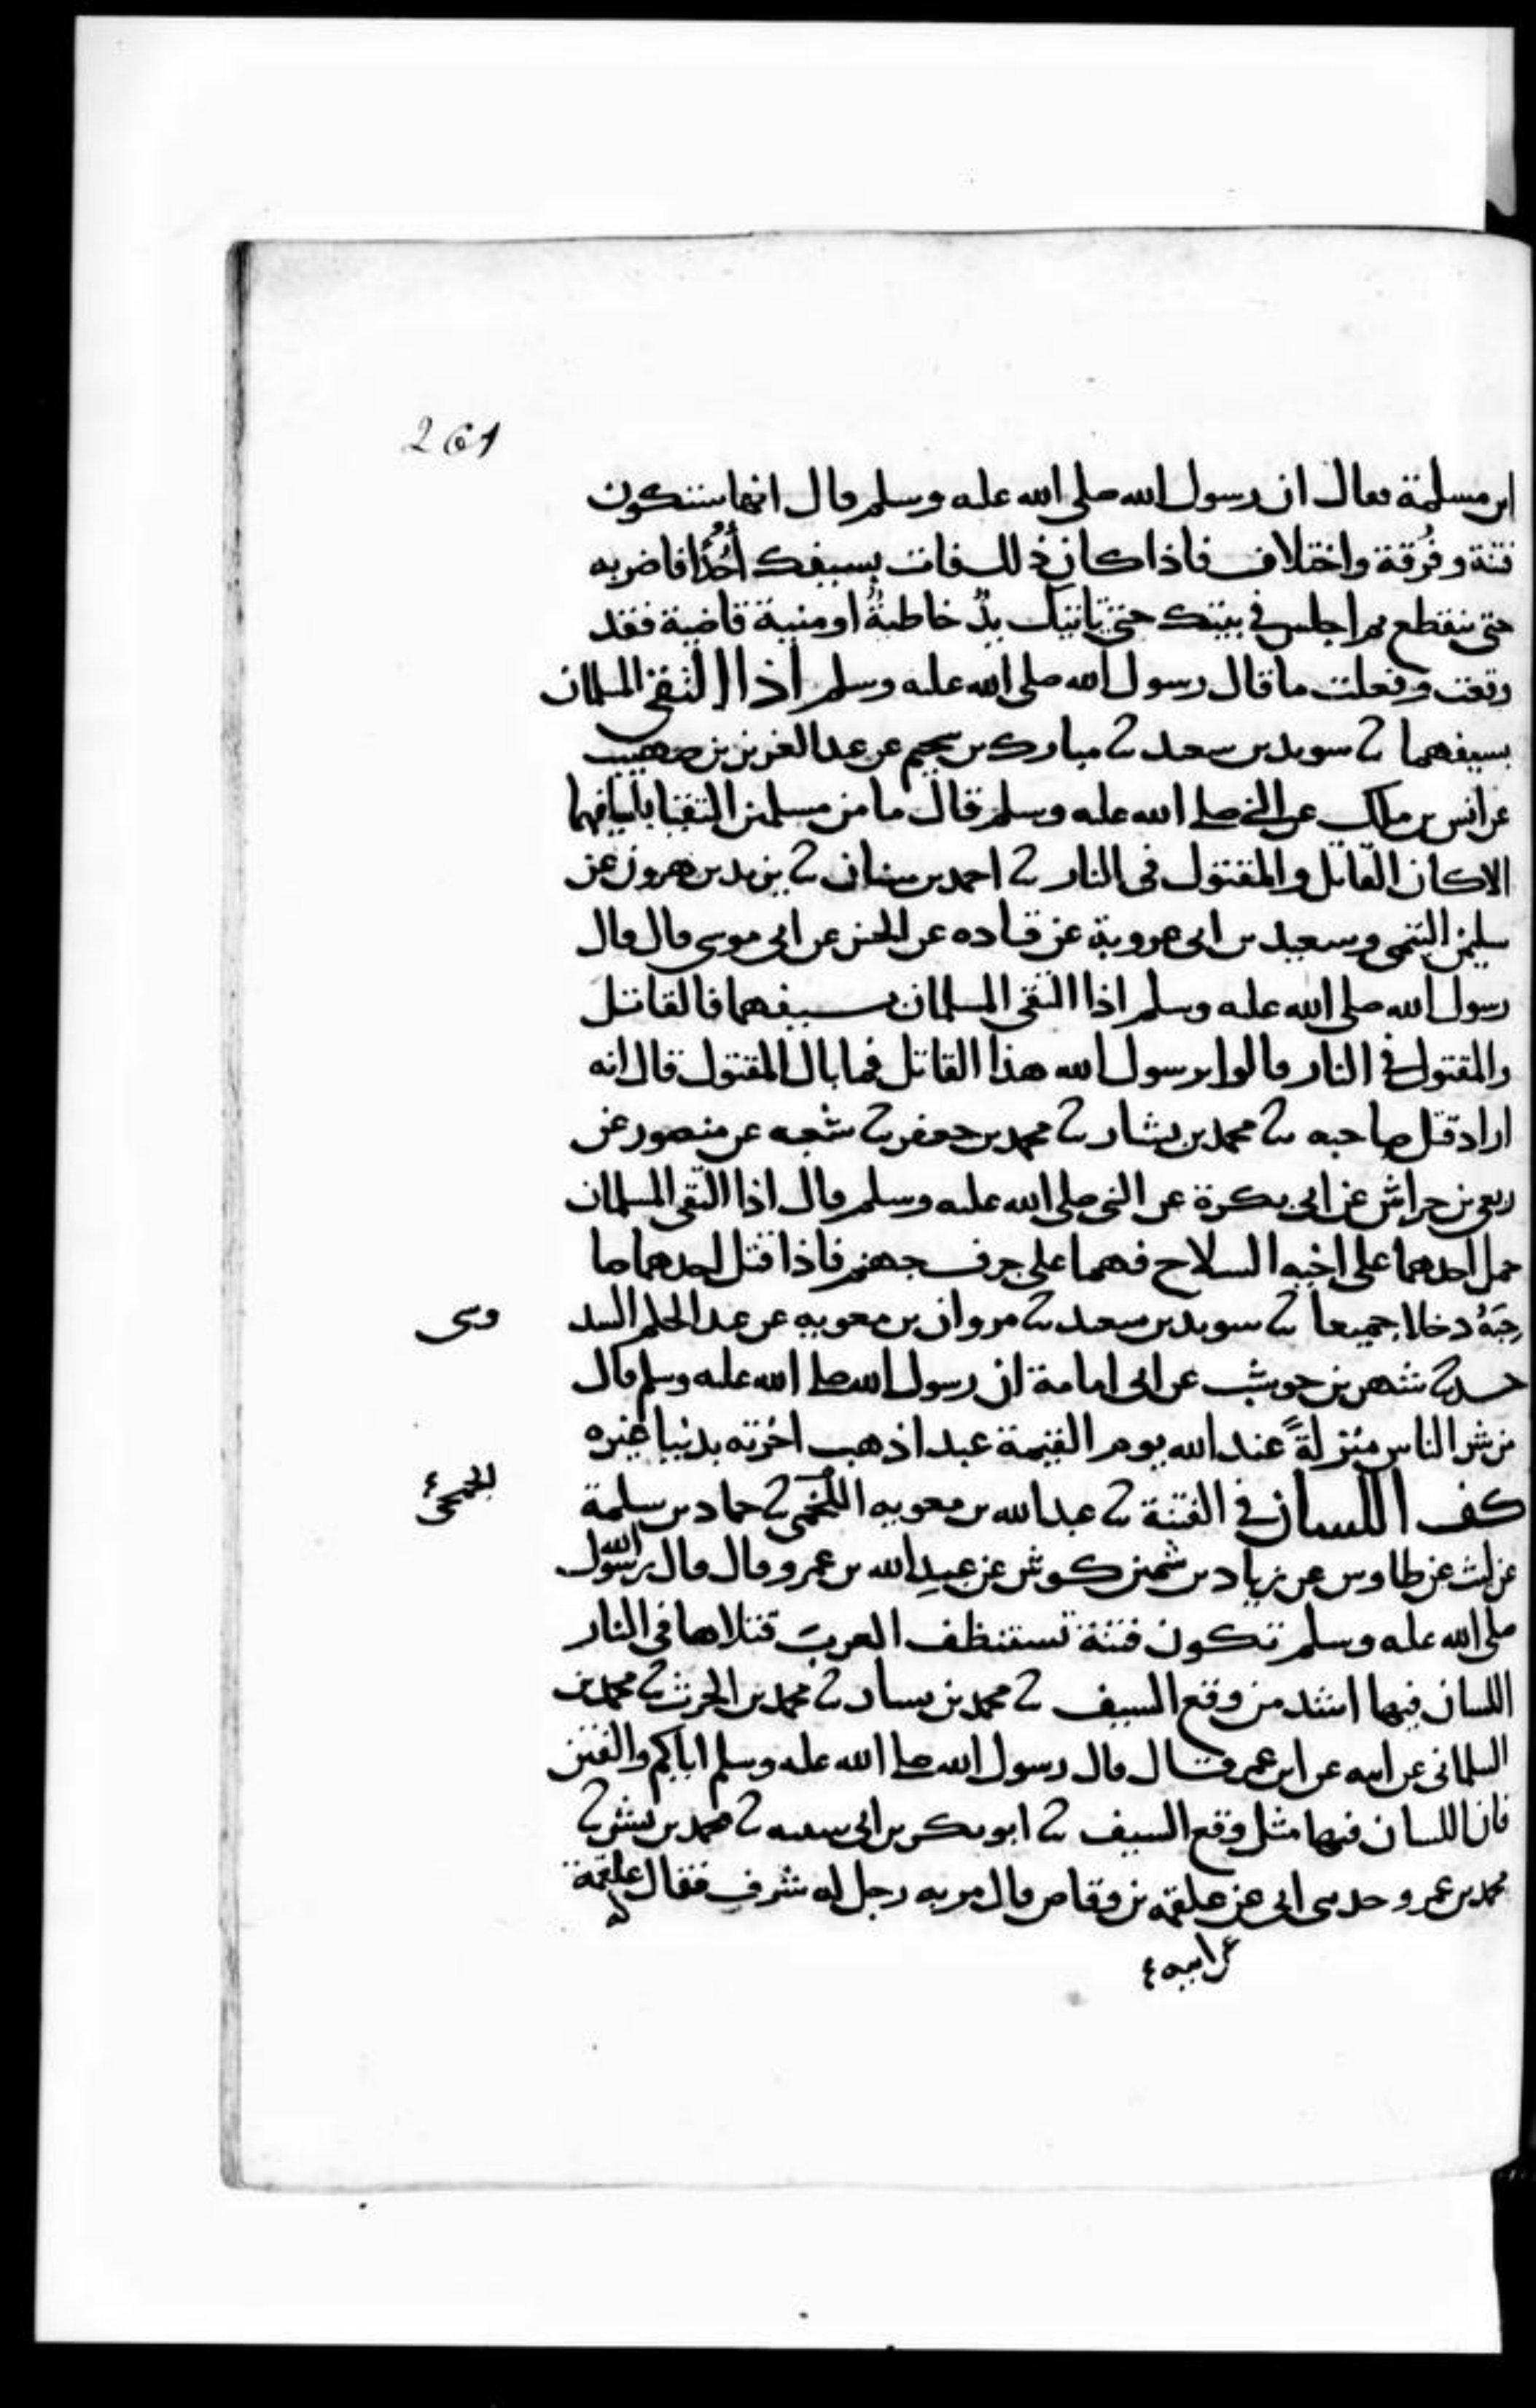 261
ابن مسلمة فقال ان رسول الله صلى الله عليه وسلم قال انها ستكون
فتنة وفرقة واختلاف فاذا كان ذلك فات بسيفك أحُدًا فاضربه
حتى ينقطع ثم اجلس في بيتك حتى تاتيك يدٌ خاطئةٌ او منية قاضية فقد
وقعت وفعلت ما قال رسول الله صلى الله عليه وسلم اذا التقى المسلمان
بسيفهما ثنا سويد بن سعيد ثنا مبارك بن سحيم عن عبد العزيز بن صهيب
عن انس بن ملك عن النبي صلى الله عليه وسلم قال ما من مسلمين التقيا باسيافهما
الا كان القاتل والمقتول في النار ثنا احمد بن سنان ثنا يزيد بن هرون عن
سليمن التيمي وسعيد بن ابي عروبة عن قتاده عن الحسن عن ابي موسى قال قال
رسول الله صلى الله عليه وسلم اذا التقى المسلمان بسيفهما فالقاتل
والمقتول في النار قالوا يرسول الله هذا القاتل فما بال المقتول قال انه
اراد قتل صاحبه ثنا محمد بن بشار ثنا محمد بن جعفر ثنا شعبه عن منصور عن
ربعي بن حراش عن ابي بكرة عن النبي صلى الله عليه وسلم قال اذا التقى المسلمان
حمل احدهما على اخيه السلاح فهما على جرف جهنم فاذا قتل احدهما صا
حِبَهُ دخلا جميعا ثنا سويد بن سعيد ثنا مروان بن معويه عن عبد الحكم السد
وسى
ثنا شهر بن حوشب عن ابي امامة ان رسول الله صلى الله عليه وسلم قال
من شر الناس منزلةً عند الله يوم القيمة عبد اذهب اخرته بدنيا غيره
كف اللسان في الفتنة ثنا عبد الله بن معويه اللخمي ثنا حماد بن سلمة
الجمحي
عن ليث عن طاوس عن زياد سيمين كوش عن عبد الله بن عمرو قال قال رسول الله
صلى الله عليه وسلم تكون فتنة تستنظف العرب قتلاها في النار
اللسان فيها اشد من وقع السيف ثنا محمد بن بشار ثنا محمد بن الحرث ثنا محمد بن
السلماني عن ابيه عن ابن عمر قال قال رسول الله صلى الله عليه وسلم اياكم والفتن
فان اللسان فيها مثل وقع السيف ثنا ابو بكر بن ابي شيبه ثنا محمد بن بشر ثنا
محمد بن عمرو حدثني ابي عن علقمه بن وقاص قال مر به رجل له شرف فقال له علقمة
عن ابيه